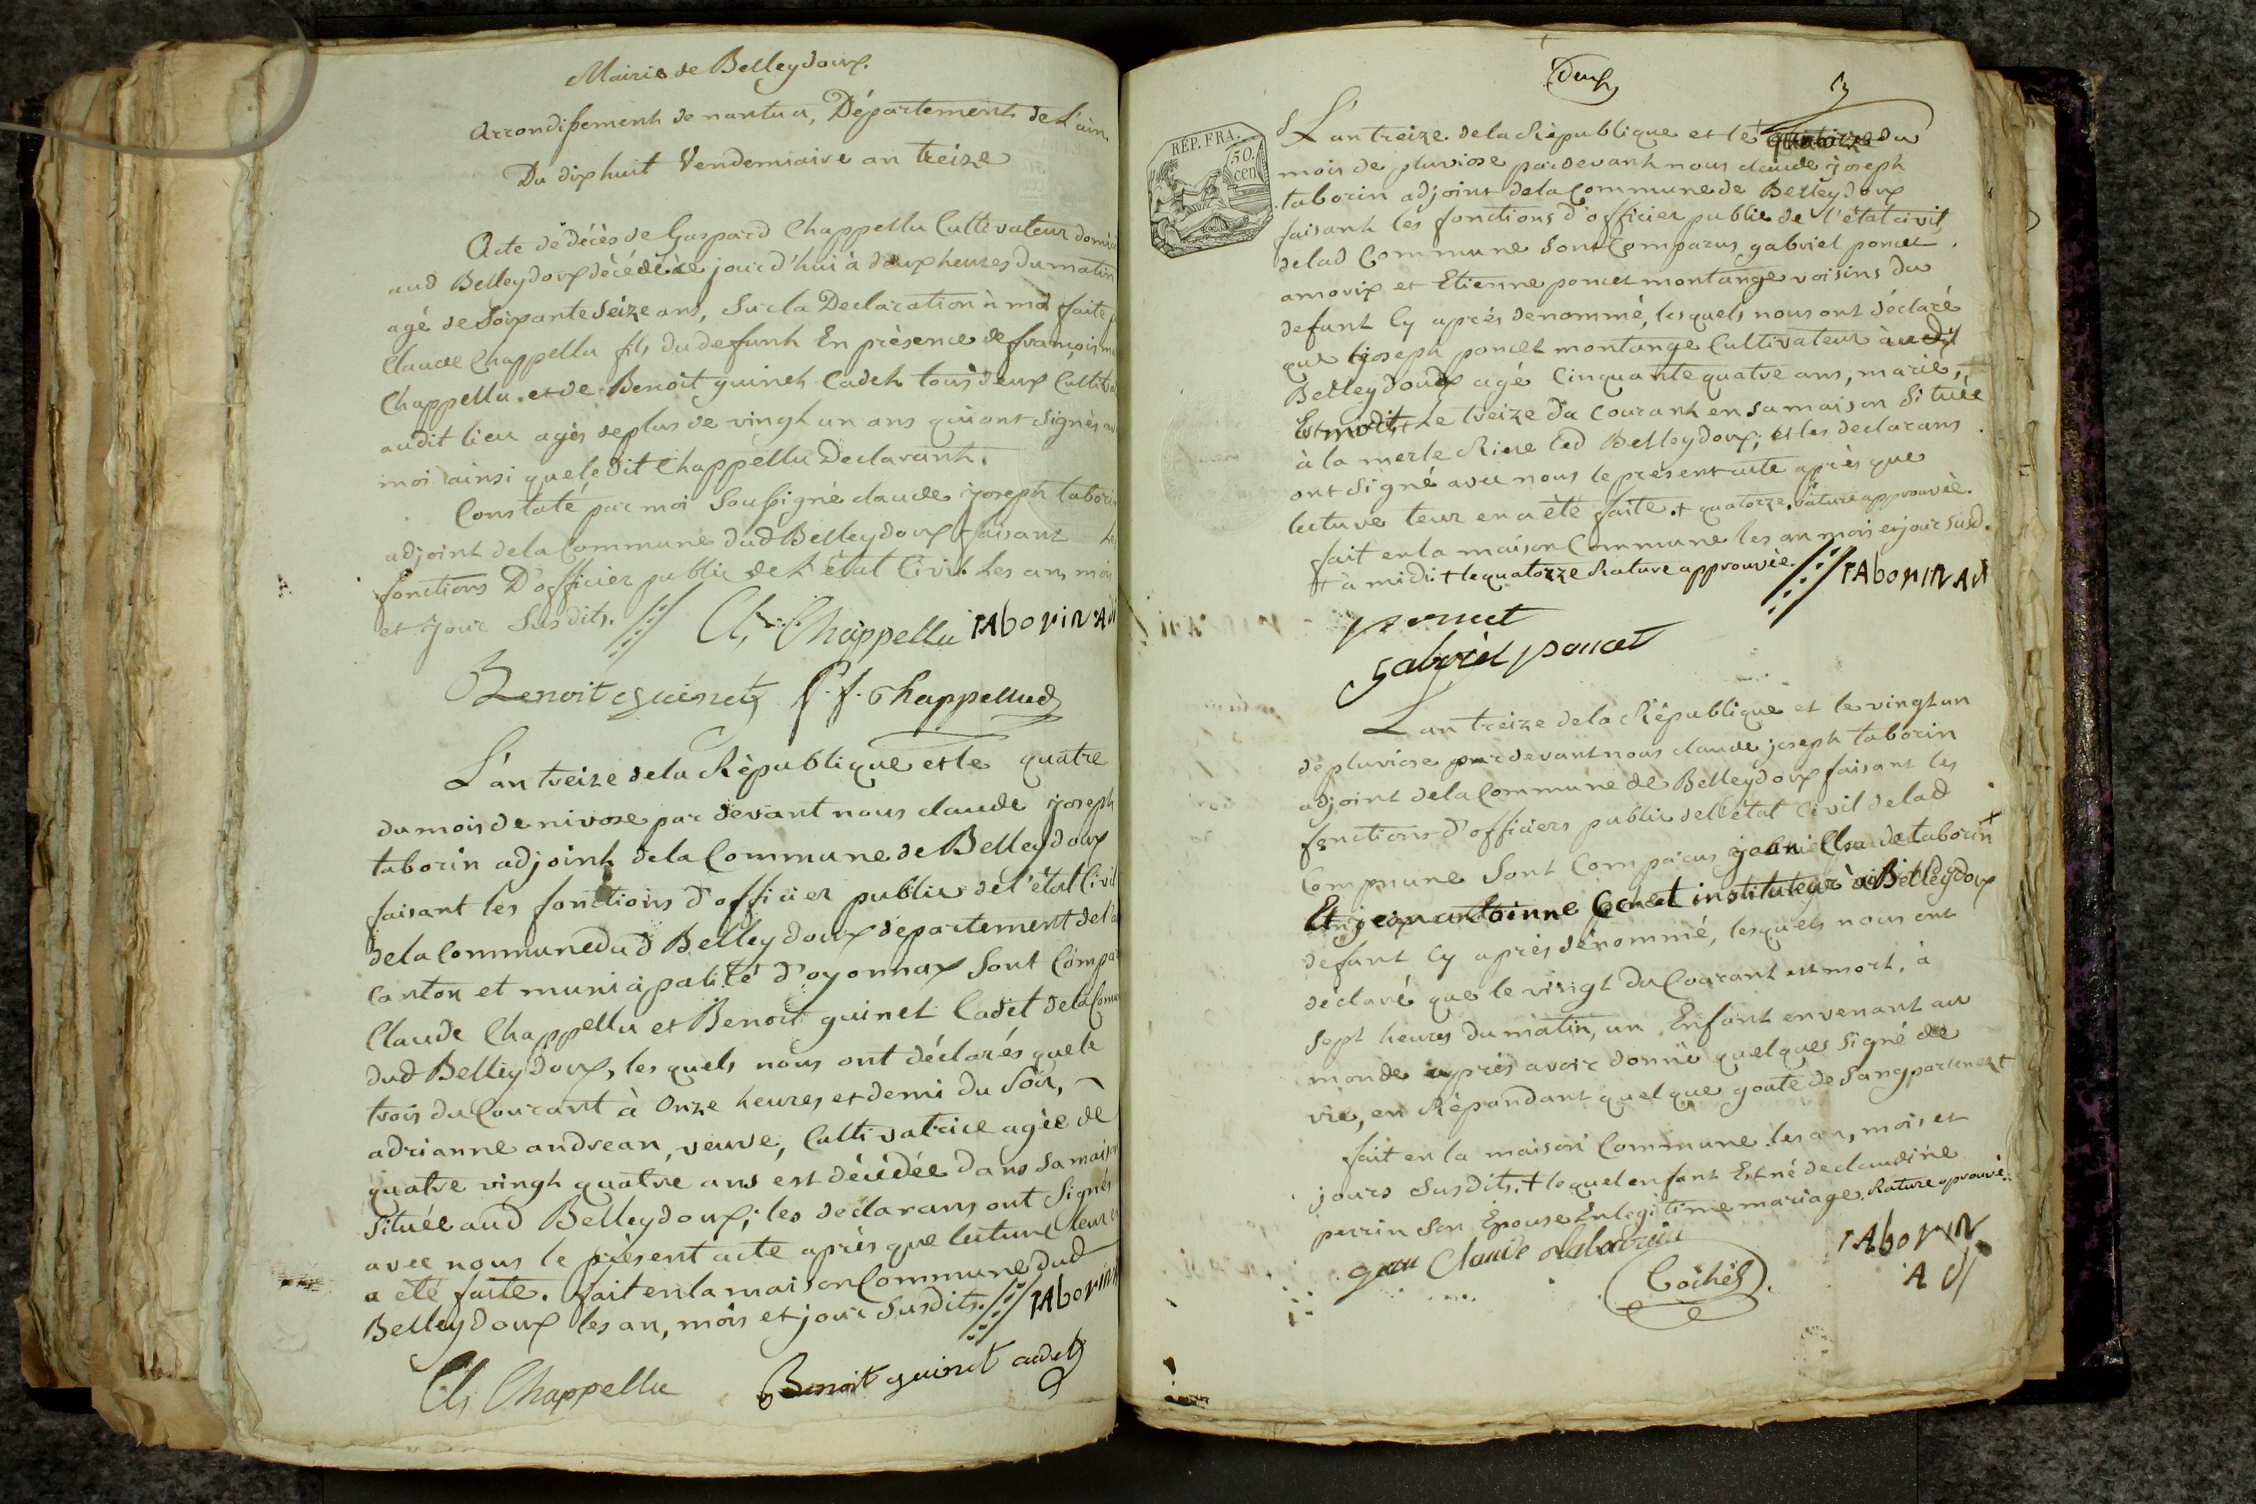 Mairie de Belleydoux.
Arrondissement de nantua, Département de L'ain.
Du dix huit Vendemiaire an treize
Acte de décès de Gaspard Chappellu Cultivateur domi
aud Belleydoux décédé ce jourd'hui à deux heures du matin
agé de Soixante Seize ans, Sur la Declaration à moi faite p
Claude Chappellu fils du defunt En présence de françois m
Chappellu. et de Benoit guinet Cadet tous deux Cultiva
audit lieu agés de plus de vingt un ans qui ont signés av
moi ainsi que le dit Chappellu Declarant.
Constaté par moi Soussigné claude joseph taborin
adjoint de la Commune dud Belleydoux faisant le
fonctions D'officier public de L'état Civil Les an, mois
et Jour Susdits. Ch Chappellu tAborin Ad
Benoit guinet f. f. Chappellud
L'an treize de la République et le quatre
du mois de nivose par devant nous claude joseph
taborin adjoint de la Commune de Belleydoux
faisant les fonctions d'officier public de l'état Civil
de la Commune dud Belleydoux département de l'a
Canton et municipalité d'oyonnax Sont Compar
Claude Chappellu et Benoit guinet Cadet de la Comm
dud Belleydoux, les quels nous ont déclarés que le
trois du Courant à Onze heures et demi du Soir,
adrianne andrean, veuve, Cultivatrice agée de
quatre vingt quatre ans est décédée dans sa maison
Située aud Belleydoux; les declarans ont Signés
avec nous le présent acte après que lecture leur en
a été faite. fait en la maison Commune dud
Belleydoux les an, mois et jour Susdits. tAborin
Ch Chappellu Benoit guinet cadet
deux
3
RÉP. FRA.
50.
cen
L'an treize de la République et le quatorze du
mois de pluviose par devant nous claude joseph
taborin adjoint de la Commune de Belleydoux
faisant les fonctions d'officier public de l'état civil
de lad Commune Sont Comparus gabriel poncet
amorix et Etienne poncet montange voisins du
defunt Cy après denommé, lesquels nous ont déclaré
que joseph poncet montange Cultivateur audit
Belleydoux agé Cinquante quatre ans, marié,
Est Le treize du Courant en sa maison Située
à la merle Riere led Belleydoux; et les declarans
ont Signé avec nous le présent acte après que
lecture leur en a été faite. + quatorze. rature approuvée.
fait en la maison Commune les an mois et jour susd.
+ à midi + le quatorze Rature approuvée. tAborin Ad
poncet
gabriel poncet
L'an treize de la République et le vingt un
de pluviose par devant nous claude joseph taborin
adjoint de la Commune de Belleydoux faisant les
fonctions d'officiers public de l'état Civil de lad
Commune Sont Comparus jean Claude taborin +
Et jean antoinne instituteur à Belleydoux
defunt Cy après dénommé, lesquels nous ont
déclaré que le vingt du Courant est mort, à
Sept heures du matin, un Enfant en venant au
monde après avoir donné quelques Signé de
vie, en Répandant quelque goute de Sang par le nez +
fait en la maison Commune les an, mois et
jours Susdits. + lequel enfant Est né de claudine
perrin son Epouse En legitime mariages. Rature aprouvée.
jean Claude taborin Cochet tAborin
Ad